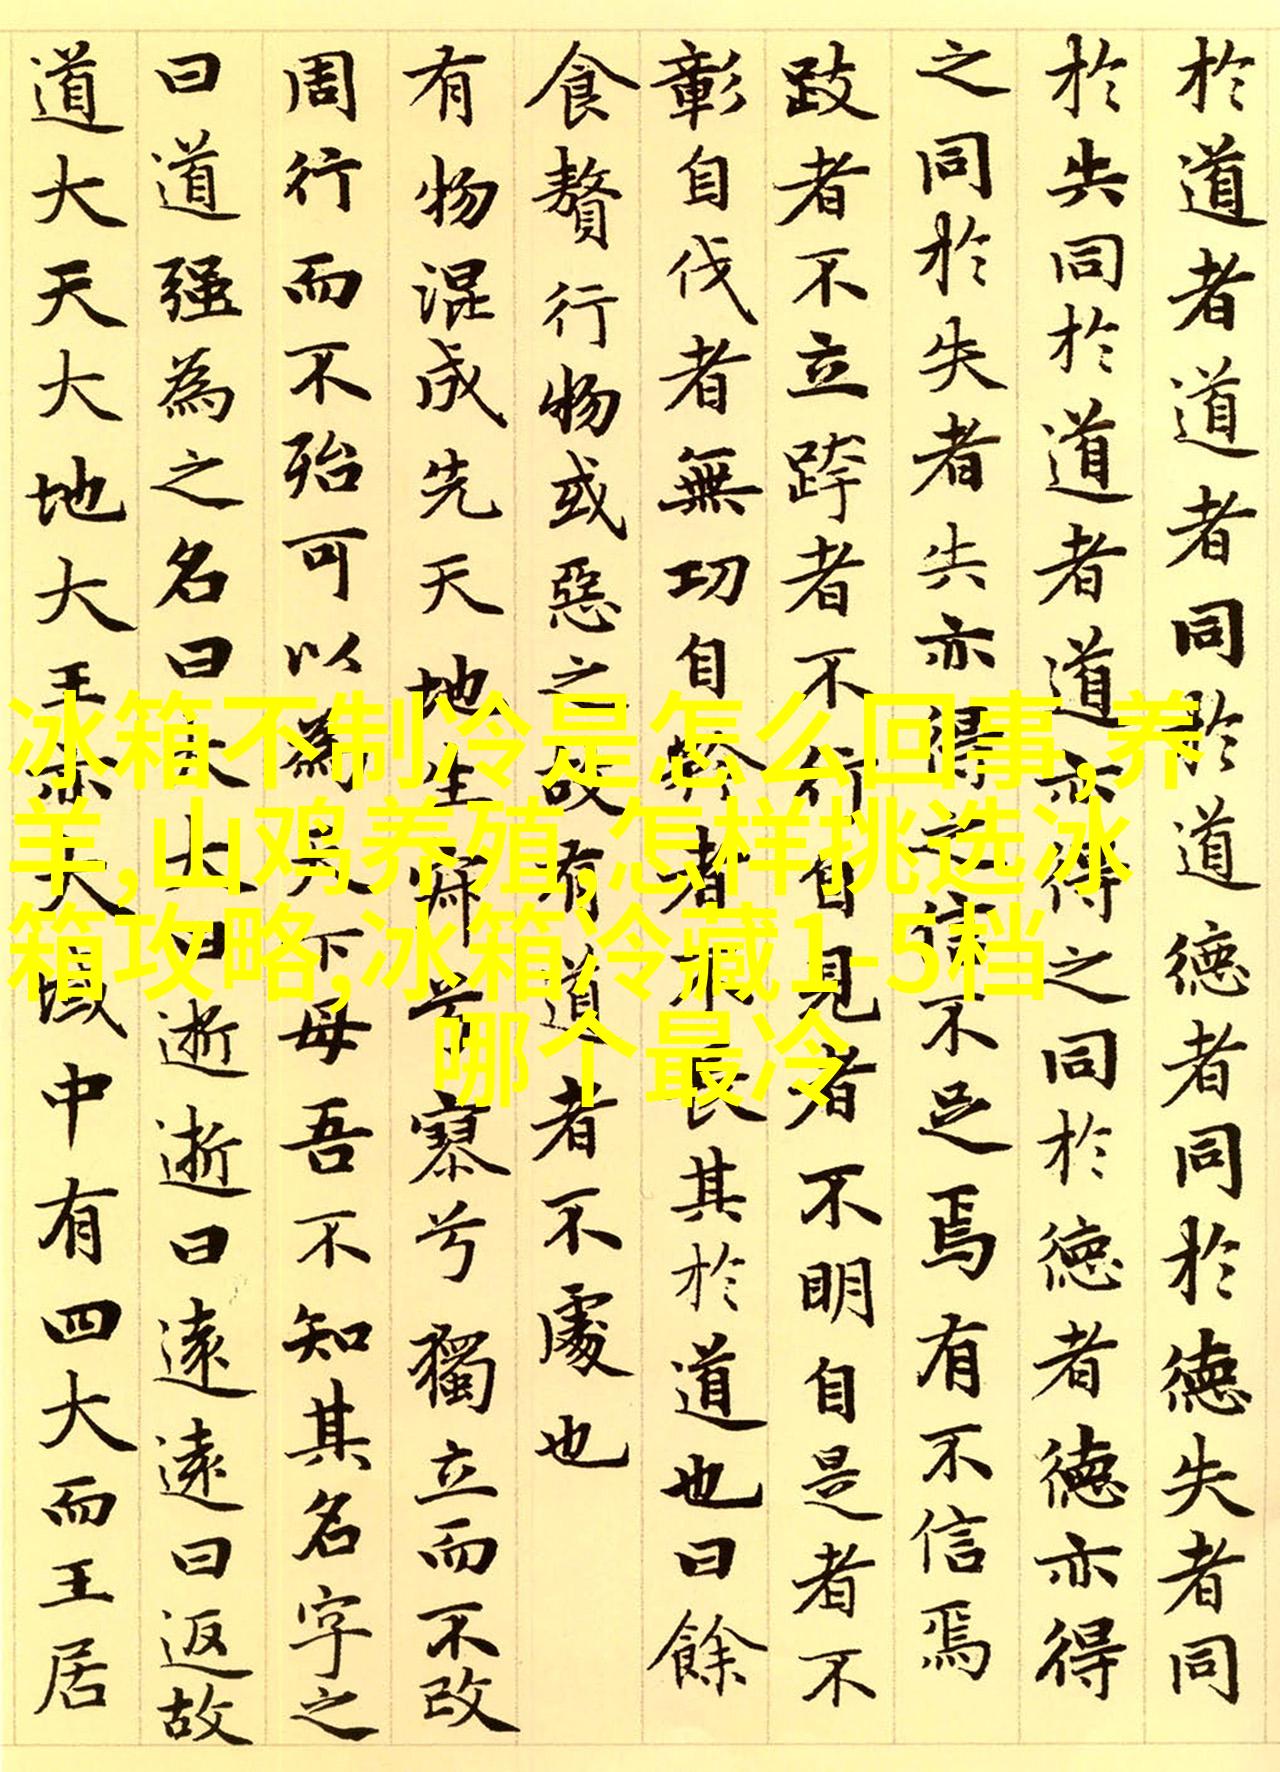 於道者道者同於道德者同於德失者同
於失同於道者道亦得之同於德者德亦得
之同於失者失亦得之信不足焉有不信焉
跂者不立跨者不行自見者不明自是者不
彰自伐者無功自矜者不長其於道也曰餘
食贅行物或惡之故有道者不處也
有物混成先天地生寂兮寥兮獨立而不改
周行而不殆可以為天下母吾不知其名字之
曰道强為之名曰大大曰逝逝曰遠遠曰返故
道大天大地大王亦大域中有四大而王居
冰箱不制冷是怎么回事,养
羊,山鸡养殖,怎样挑选冰
箱攻略,冰箱冷藏1-5档
哪个最冷